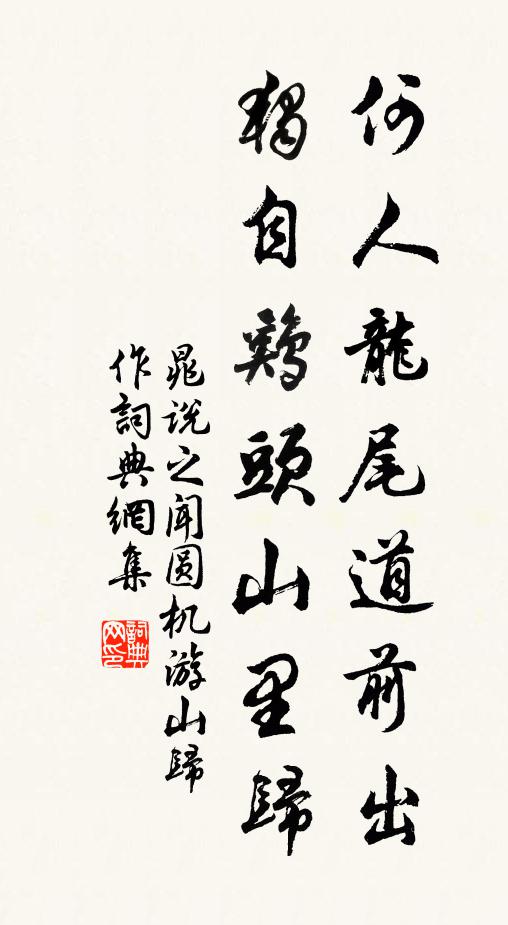 何人龍尾道前出
獨自鷄頭山里歸
晁说之闻圆机游山歸
作詞典網集
詞典
网印